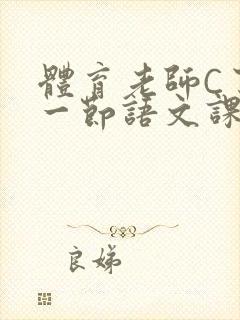 體育老師C
一節語文課
良娣